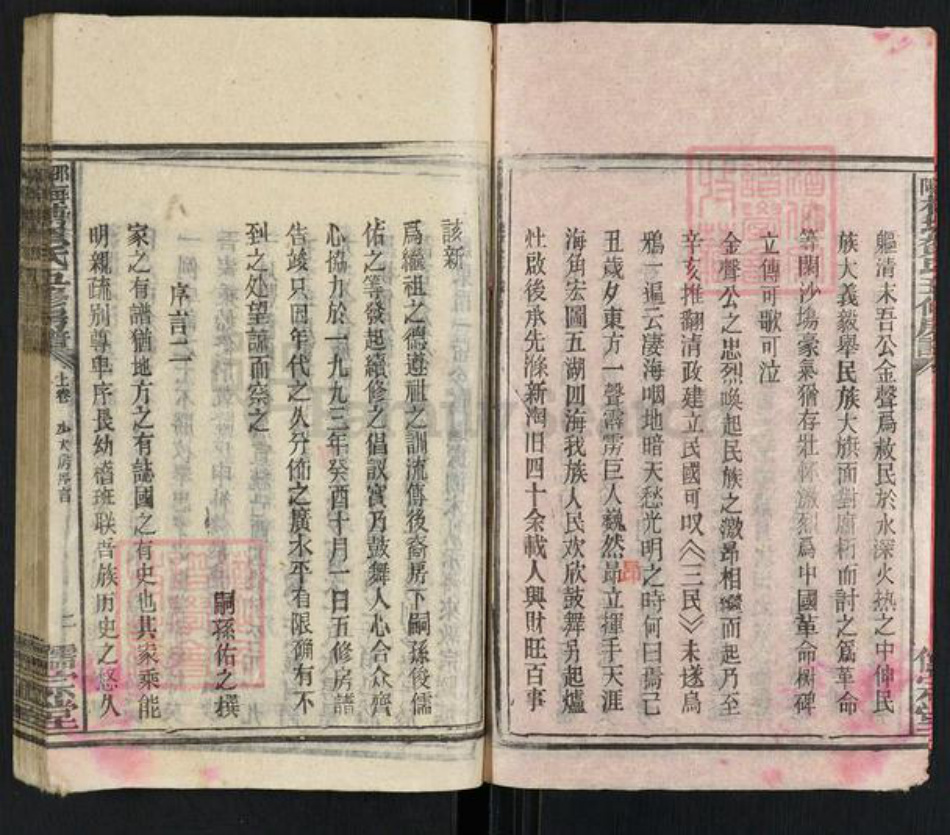 軀清末吾公金聲爲救民於水深火热之中伸民
族大義毅舉民族大旗面對庿柄而討之篇革命
等閑沙塲豪氣猶存壯怀激烈爲中國革命樹碑
立傳可歌可泣
金聲公之忠烈喚起民族之激昂相繼而起乃至
辛亥推翻清政建立民國可叹《三民》未遂烏
鴉一遍云凄海咽地暗天愁光明之時何曰焉己
丑歲夕東方一聲霹雳巨人巍然昂立揮手天涯
海角宏圖五湖四海我族人民欢欣鼓舞另起爐
灶啟後承先滌新淘旧四十余載人興財旺百事
該新
爲繼祖之德遵祖之訓流傳後裔房下嗣孫俊儒
佑之等發起續修之倡議賞乃鼓舞人心合众齊
心協力於一九九三年癸酉十月一日五修房譜
告竣只因年代之久分佈之廣水平有限確有不
到之处望諒而察之
嗣孫佑之撰
序言二
家之有譜猶地方之有誌國之有史也其家乘能
明親疏别尊卑序長幼稽班联吾族历史之悠久
上卷
二
儒宗堂